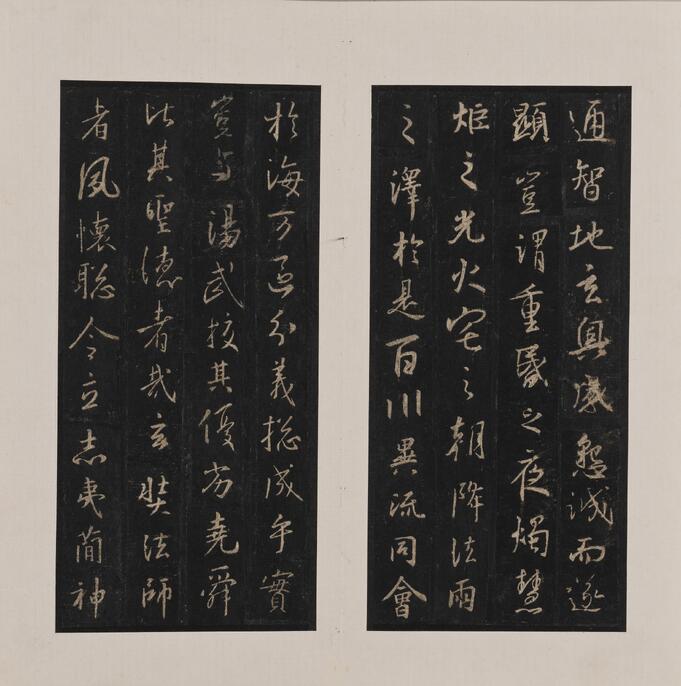 通智地玄奥感懇誠而遂
顯豈謂重昬之夜燭慧
炬之光火宅之朝降法雨
之澤於是百川異流同會
於海万區分義揔成乎實
豈与湯武挍其優劣堯舜
比其聖德者哉玄奘法師
者夙懷聡令立志夷簡神